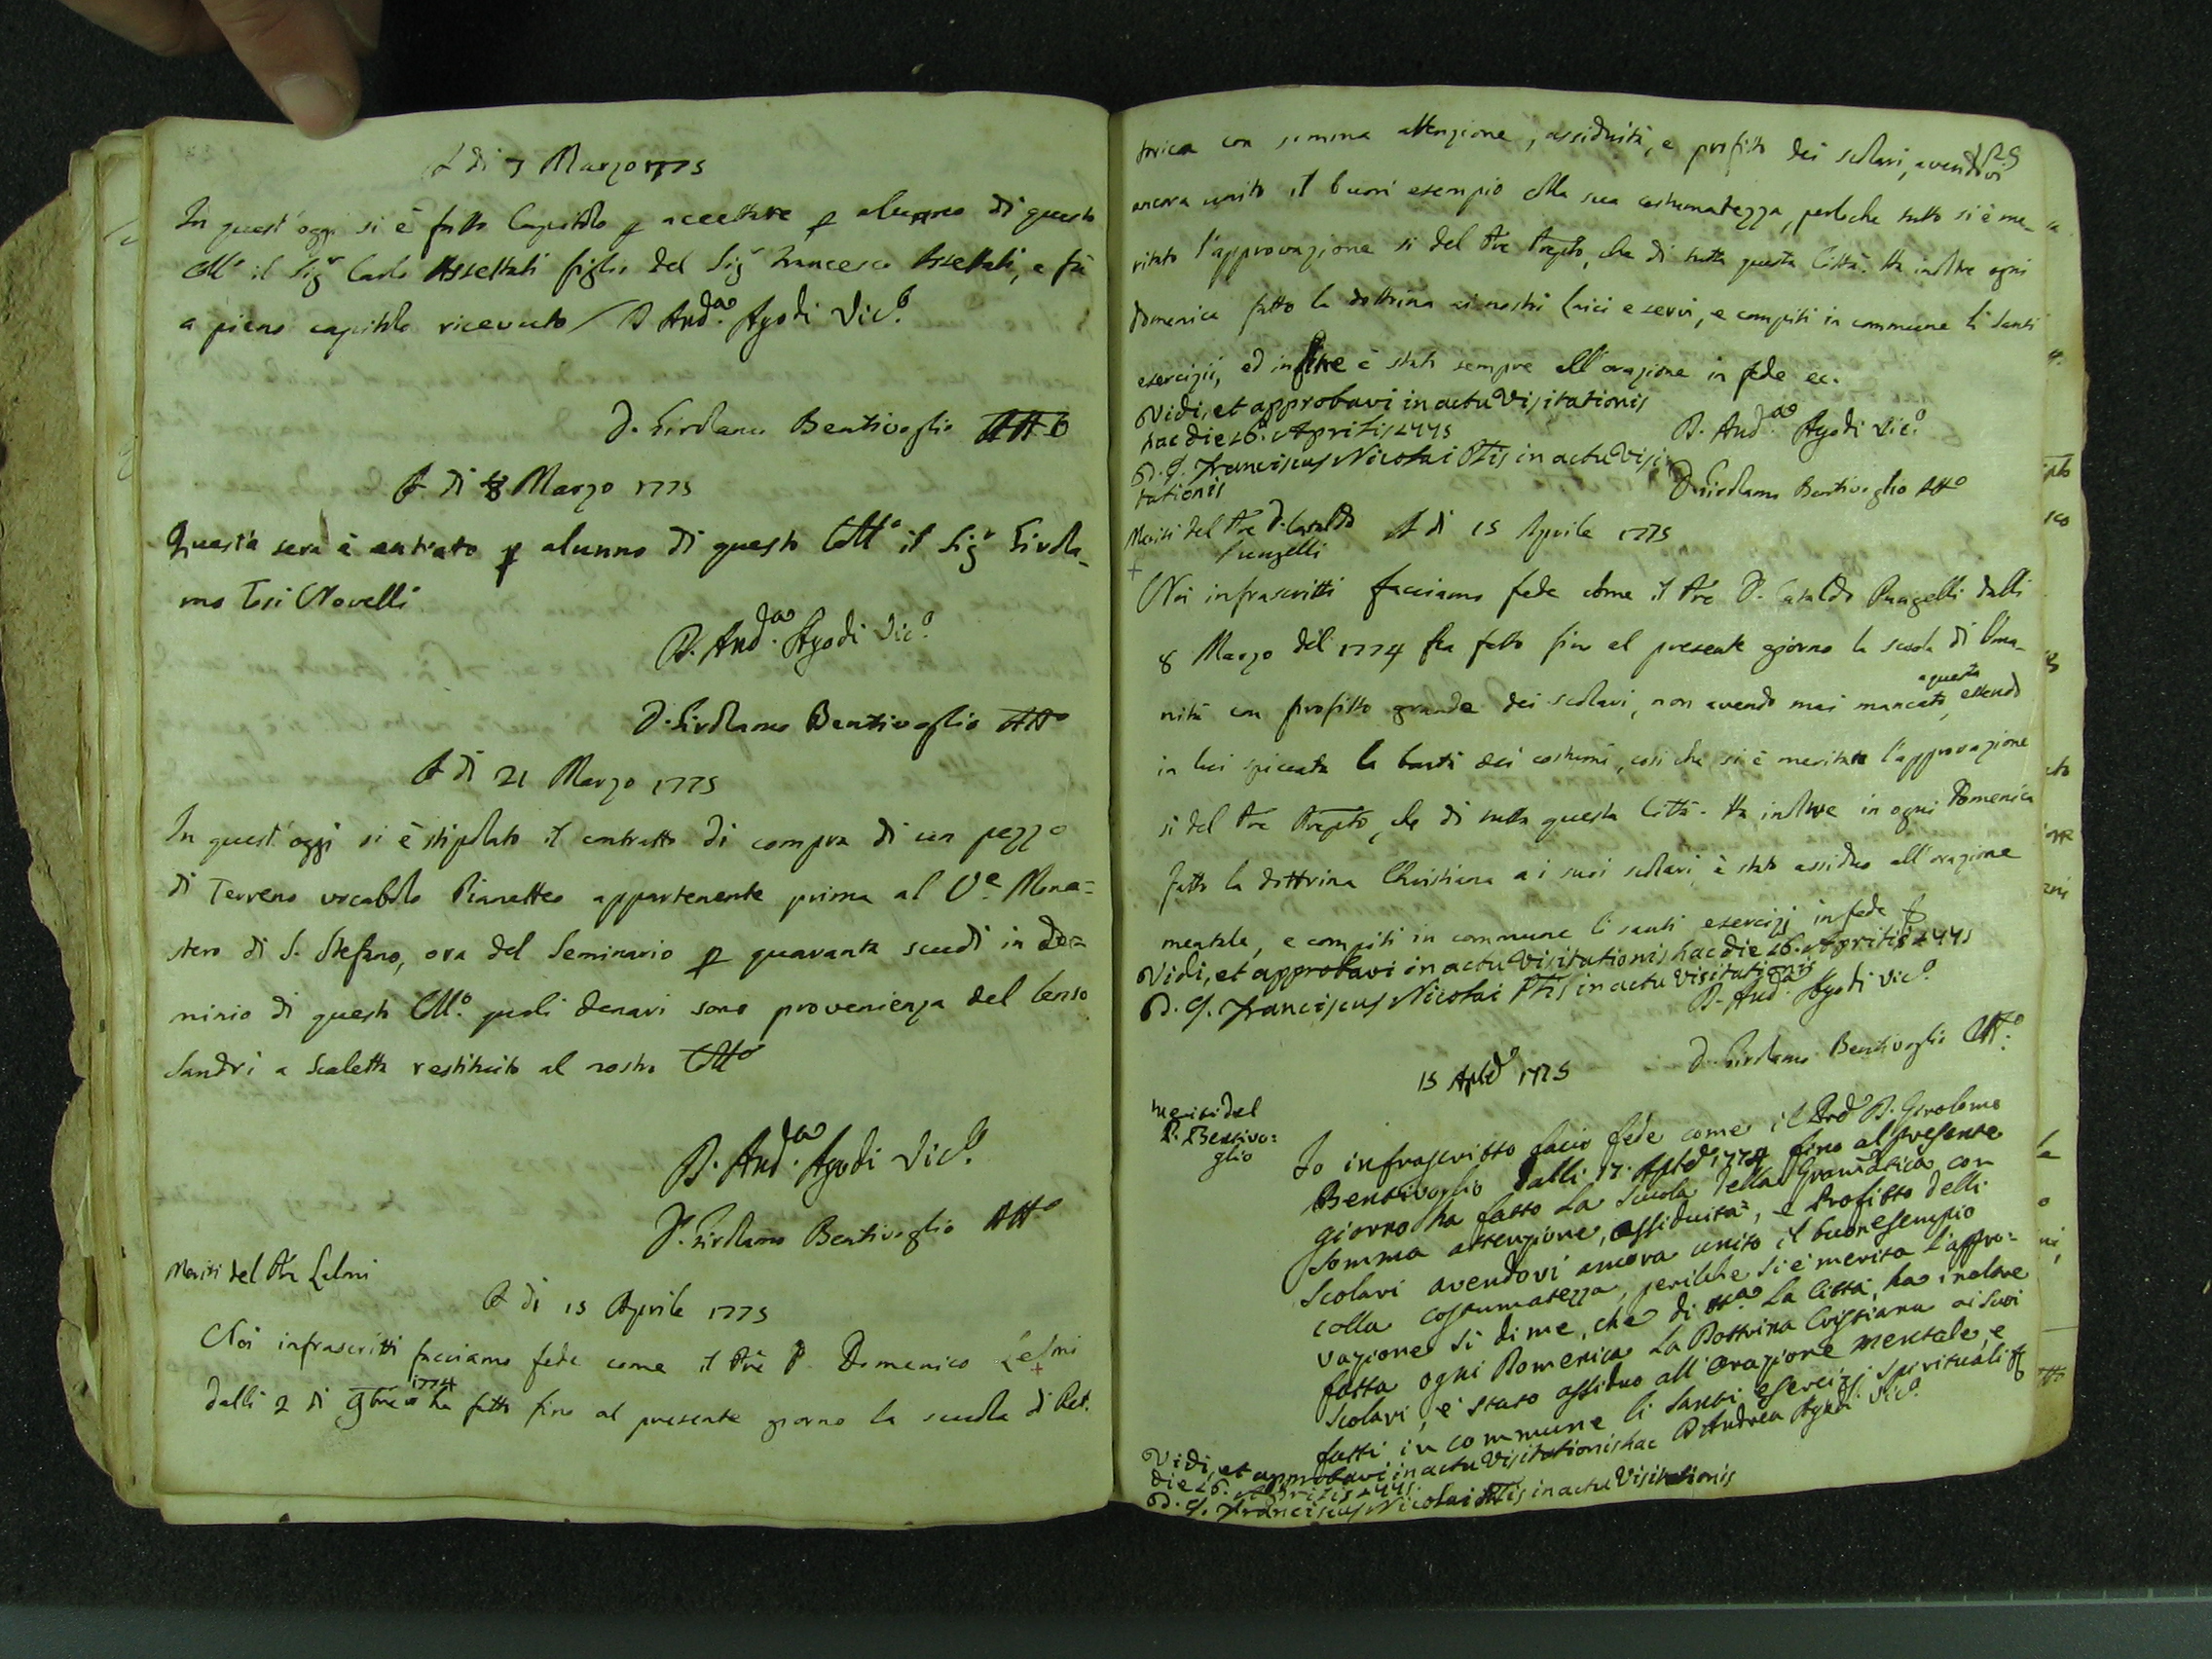 A di 7 Marzo 1775
In quest'oggi si è fatto Capitolo p accettare p alunno di questo
Collo il Sigr Carlo Assettati figlio del Sigr Francesco Assettati, e fù
a pieno capitolo ricevuto / D Anda. Agodi Vico.
D. Girolamo Bentivoglio Atto
A di 8 Marzo 1775
Questa sera è entrato p alunno di questo Collo il Sigr Girola-
mo Tosi Novelli
D. Anda. Agodi Vico.
D. Girolamo Bentivoglio Atto
A di 21 Marzo 1775
In quest'oggi si è stipolato il contratto di compra di un pezzo
di Terreno vocabolo Pianetteo appartenente prima al Ve. Mona=
stero di S. Stefano, ora del Seminario p quaranta scudi in Do=
minio di questo Collo. quali denari sono provenienza del Censo
Sandri a Scaletta restituito al nostro Collo
D. Anda. Agodi Vico.
D. Girolamo Bentivoglio Atto
Meriti del Pre Lelmi
A di 15 Aprile 1775
Noi infrascritti facciamo fede come il Pre D. Domenico Lelmi
dalli 2 di 9bre 1774 ha fatto fino al presente giorno la scuola di Ret.
torica con somma attenzione, assiduità, e profitto dei scolari, avendovi
ancora unito il buon esempio colla sua costumatezza, perloche tutto si è me-
ritato l'approvazione si del Pre Prepto, che di tutta questa Città. Ha inoltre ogni
Domenica fatto la dottrina ai nostri laici e servi, e compiti in commune li Santi
esercizii, ed infine è stato sempre all'orazione in fede ec.
Vidi, et approbavi in actu Visitationis
hac die 26. Aprilis 1775
D. Anda. Agodi Vico.
D. G. Franciscus Nicolai Ptis in actu Visi
tationis
D. Girolamo Bentivoglio Atto
Meriti del Pre D. Cataldo
Pungelli
A di 15 Aprile 1775
Noi infrascritti facciamo fede come il Pre D. Cataldo Pungelli dalli
8 Marzo del 1774 ha fatto fino al presente giorno la scuola di Uma-
nità con profitto grande dei scolari, non avendo mai mancato a questa, essendo
in lui spiccata la bontà dei costumi, così che si è meritato l'approvazione
si del Pre Prepto, che di tutta questa Città. Ha inoltre in ogni Domenica
fatto la dottrina Christiana a i suoi scolari, è stato assiduo all'orazione
mentale, e compiti in commune li santi esercizj in fede
Vidi, et approbavi in actu Visitationis hac die 26. Aprilis 1775
D. G. Franciscus Nicolai Ptis in actu Visitationis
D. Anda. Agodi Vico.
D. Girolamo Bentivoglio Atto.
15 Aple 1775
Meriti del
P. Bentivo=
glio
Io infrascritto facio fede come il Pre D. Girolamo
Bentivoglio dalli 17. Aple 1774 fino al presente
giorno ha fatto la Scuola della Gramatica con
somma attenzione, assiduità, e Profitto delli
Scolari avendovi ancora unito il buon esempio
colla costumatezza, perilche si è merita l'appro=
vazione si di me, che di tta. la Città, ha inoltre
fatta ogni Domenica la Dottrina Cristiana ai suoi
Scolari, è stato assiduo all'Orazione mentale, e
fatti in commune li Santi esercizj spirituali
D Andrea Agodi Vico.
Vidi, et approbavi in actu Visitationis hac
die 26. Aprilis 1775.
D. G. Franciscus Nicolai Ptis in actu Visitationis